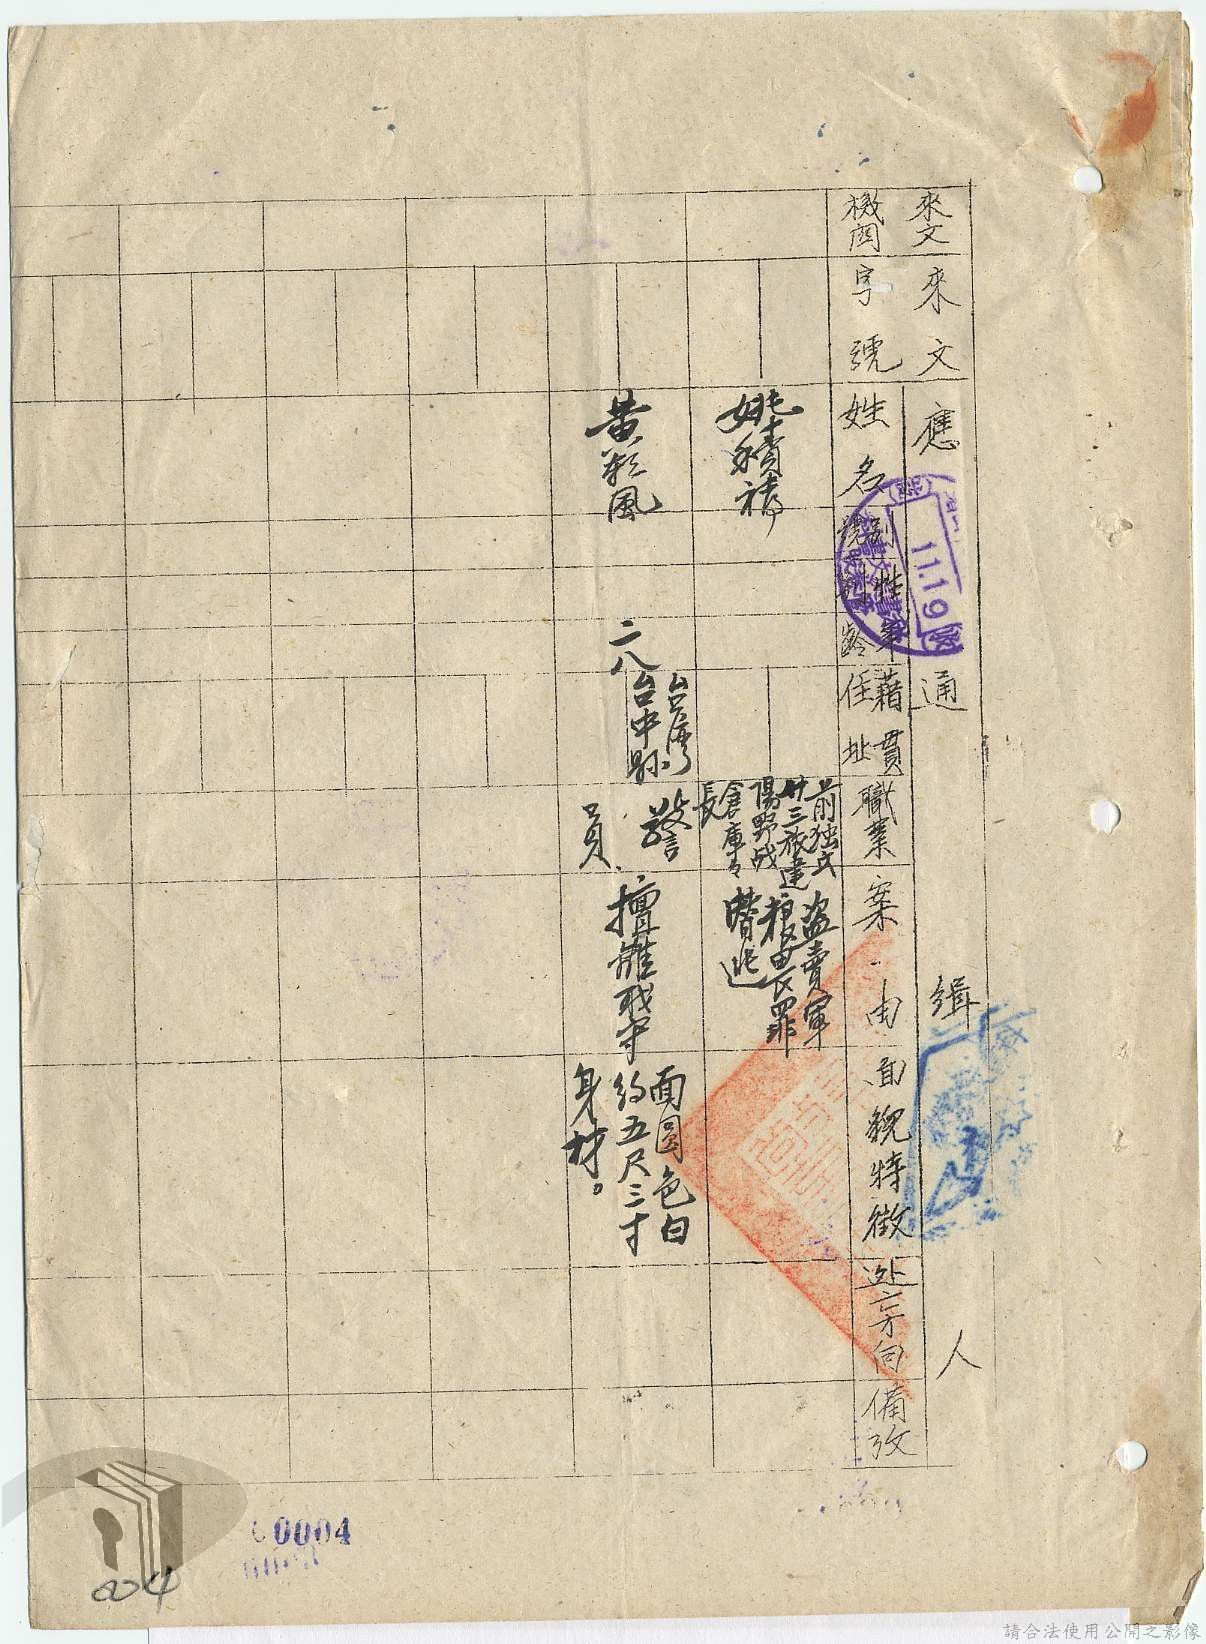 來文機関
來文字號
應通緝人
姓名
別號
性別
年齡
籍貫
住址
職業
案由
面貌特徵
逃亡方向
備攷
姚積禱
前独立
廿三旅建
陽野战
倉庫
長
盗賣軍
粮畏罪
潜逃
黃彩風
二八
台灣
台中縣
警
員
擅離职守
面圓色白
約五尺三寸
身材。
11.19
0004
004
請合法使用公開之影像